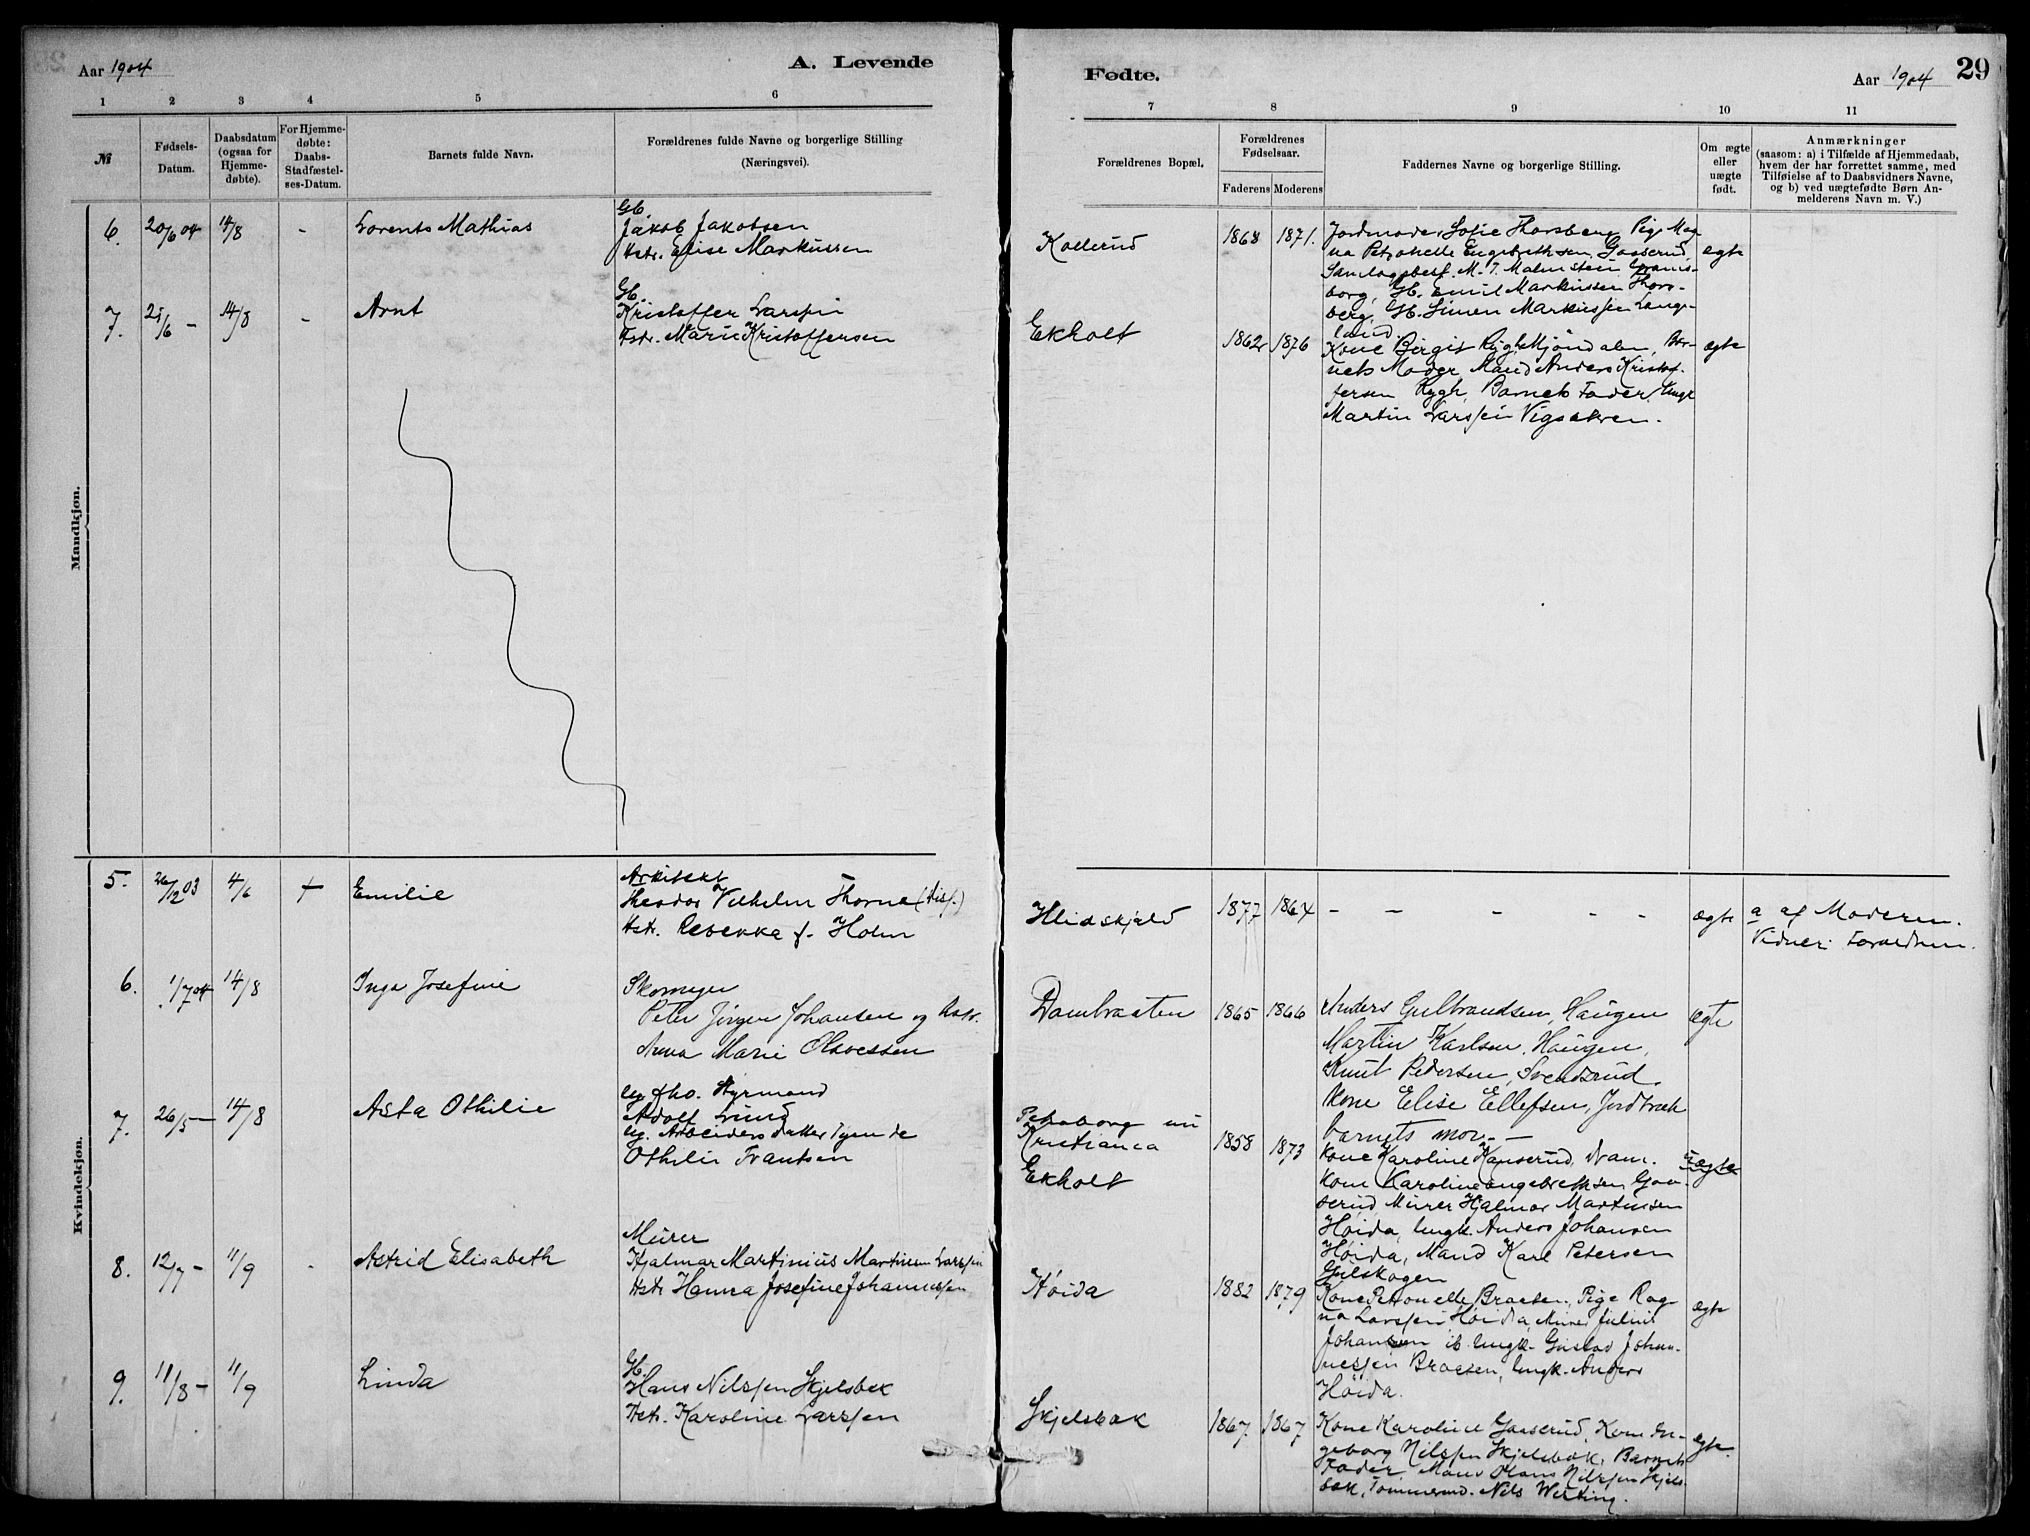 Aar 1904
A. Levende
Fødte.
Aar 1904
29
1 2 3 4 5 6 7 8 9 10 11
№
Fødsels-
Datum.
Daabsdatum
(ogsaa for
Hjemme-
døbte).
For Hjemme-
døbte:
Daabs-
Stadfæstel-
ses-Datum.
Barnets fulde Navn.
Forældrenes fulde Navne og borgerlige Stilling
(Næringsvei).
Forældrenes Bopæl.
Forældrenes
Fødselsaar.
Faderens Moderens
Faddernes Navne og borgerlige Stilling.
Om ægte
eller
uægte
født.
Anmærkninger
(saasom: a) i Tilfælde af Hjemmedaab,
hvem der har forrettet samme, med
Tilføielse af to Daabsvidners Navne,
og b) ved uægtefødte Børn An-
melderens Navn m. V.)
Mandkjøn.
6. 20/6 04 14/8 - Lorents Mathias
Gb.
Jakob Jakobsen
Hstr. Elise Markussen
Kollerud 1868 1871.
Jordmoder Sofie Thorsberg, Pige Mag
na Petronelle Engebrethsen Gaaserud,
M. T. Malmstein Grans-
borg, Gb. Emil Markussen Thors-
berg, Gb. Simen Markussen Lange-
land.
ægte
7. 25/6 - 14/8 - Arnt
Gb.
Kristoffer Larssen
Hstr. Marie Kristoffersen
Ekholt 1862 1876
Kone Birgit Rygh Mjøndalen, Bar-
nets Moder, Mand Anders Kristof-
fersen Rygh, Barnets Fader, Ungk
Martin Larssen Vigsakren.
ægte
Kvindekjøn.
5. 26/12 03 4/6 + Emilie
Arkitekt
Theodor Vilhelm Thorne (diss.)
Hstr. Rebekka f. Holm
Hlidskjalv 1877 1864 - - - - -
ægte
a af Moderen.
Vidner: Forældrene.
6. 1/7 04 14/8 Inga Josefine
Skomager
Peter Jørgen Johansen og Hstr.
Anna Marie Olavessen
Dambraaten 1865 1866
Anders Gulbrandsen, Haugen
Martin Karlsen, Haugen,
Knut Pedersen, Svendsrud.
Kone Elise Ellefsen, Jordbræk
barnets mor. -
ægte
7. 26/5 - 14/8 Asta Othilie
Ug fho. Styrmand
Adolf Lund
Ug. Arbeiders datter Tjende
Othilie Frantsen
Kristiania
Ekholt
1858 1873
Kone Karoline Kanserud, Dam.
Kone Karoline Engebrethsen Gaa-
serud, Murer Hjalmar Martinsen
Høida, Ungk. Anders Johansen
Høida, Mand Karl Petersen
Gulskogen
uægte
8. 12/7 - 11/9 - Astrid Elisabeth
Murer
Hjalmar Martinius Martinsen Larssen
Hstr Hanna Josefine Johannessen
Høida 1882 1879
Kone Petronelle Braaten, Pige Rag
na Larssen Høida, Murer Julius
Johansen ib. Ungk. Gustav Johan-
nessen Braaten, Ungk. Anders
Høida.
ægte
9. 11/8 - 11/9 Linda
Gb.
Hans Nilssen Skjelsbæk
Hstr. Karoline Larssen
Skjelsbæk 1867. 1867
Kone Karoline Gaaserud, Kone In-
geborg Nilssen Skjelsbæk, Barnets
Fader, Mand Hans Nilssen Skjels-
bæk, Tommermd. Nils Werking.
ægte